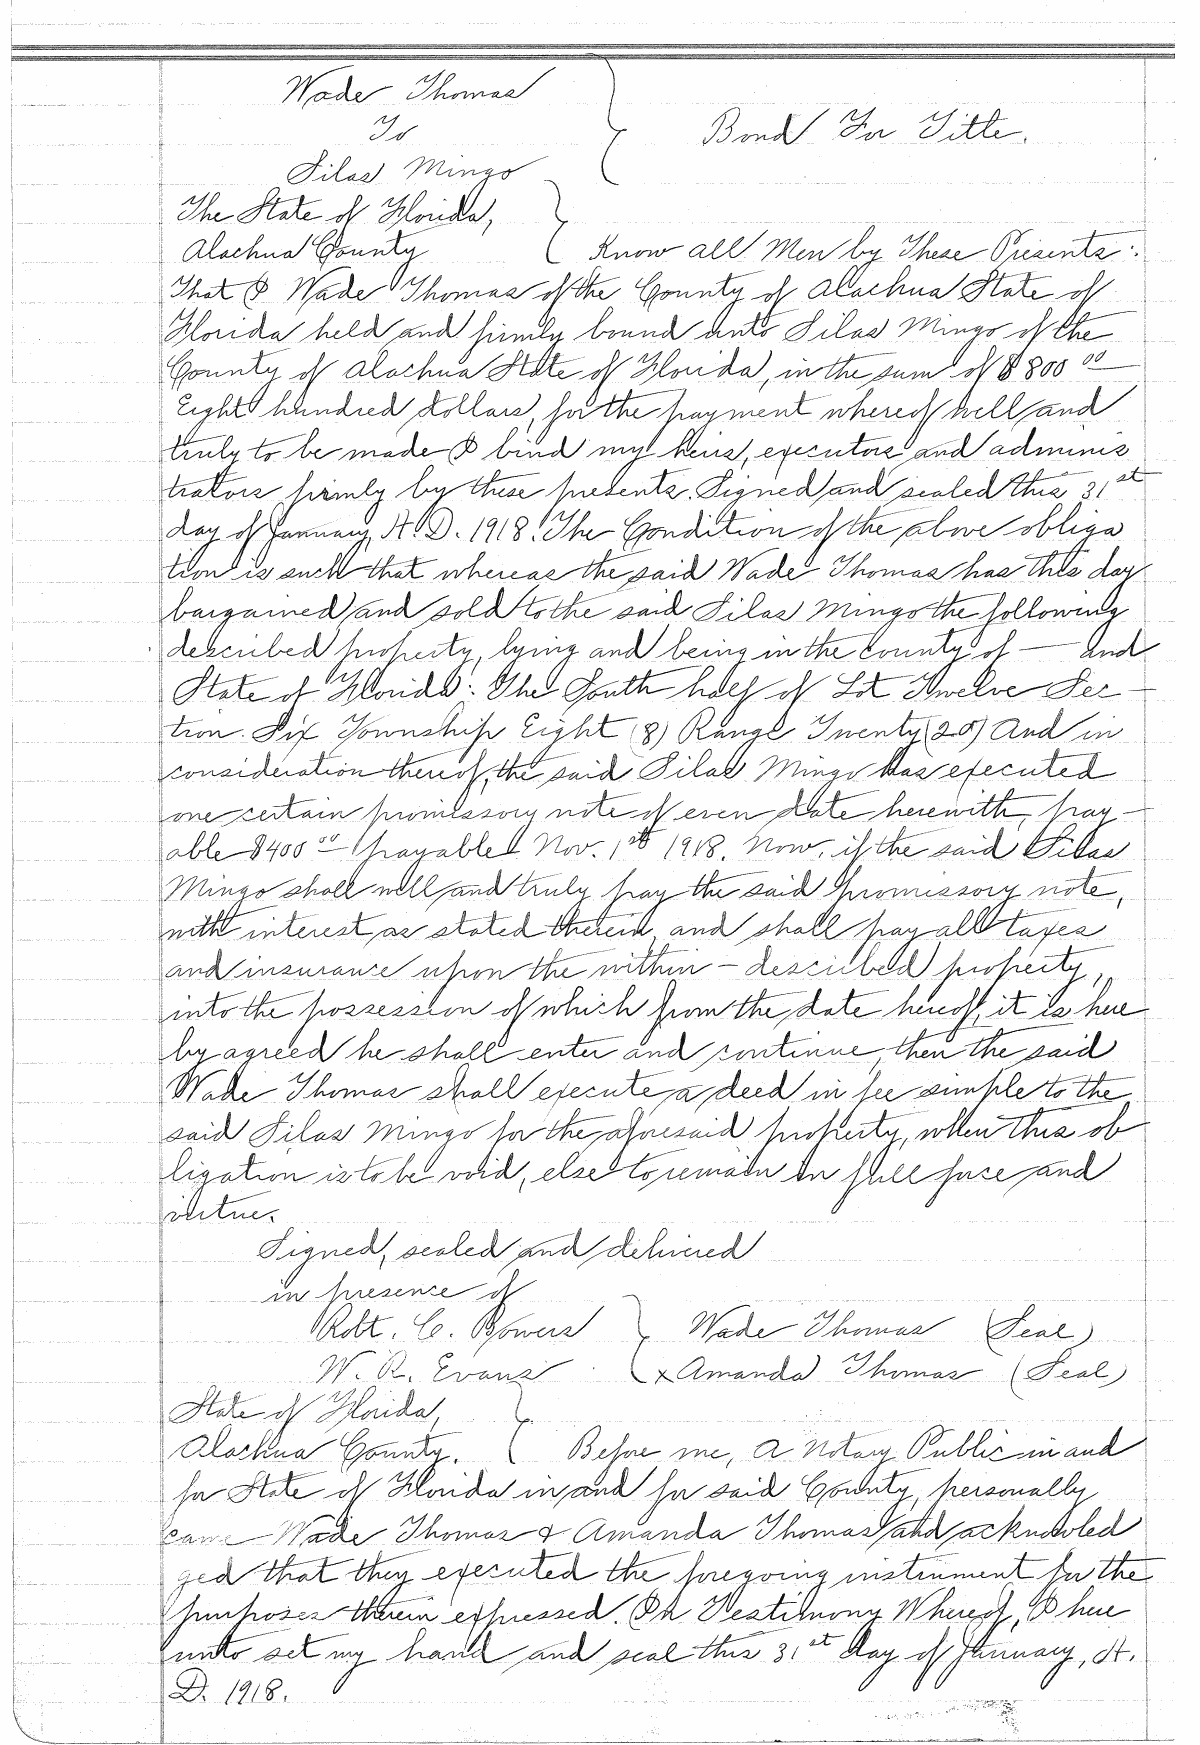 Wade Thomas
To
Silas Mingo
Bond For Title.
The State of Florida,
Alachua County
Know all Men by These Presents:
That I Wade Thomas of the County of Alachua State of
Florida held and firmly bound unto Silas Mingo of the
County of Alachua State of Florida, in the sum of $800 00
Eight hundred dollars, for the payment whereof well and
truly to be made I bind my heirs, executors and adminis
trators firmly by these presents. Signed and sealed this 31st
day of January, A. D. 1918. The Condition of the above obliga
tion is such that whereas the said Wade Thomas has this day
bargained and sold to the said Silas Mingo the following
described property, lying and being in the county of — and
State of Florida: The South half of Lot Twelve Sec —
tion. Six Township Eight (8) Range Twenty (20) And in
consideration thereof, the said Silas Mingo has executed
one certain promissory note of even date herewith, pay —
able $400 00 payable Nov. 1st 1918. Now, if the said Silas
Mingo shall well and truly pay the said promissory note,
with interest as stated therein, and shall pay all taxes
and insurance upon the within - described property,
into the possession of which from the date hereof, it is here
by agreed he shall enter and continue, then the said
Wade Thomas shall execute a deed in fee simple to the
said Silas Mingo for the aforesaid property, when this ob
ligation is to be void, else to remain in full force and
virtue.
Signed, sealed and delivered
in presence of
Robt. C. Bowers
Wade Thomas (Seal)
W. R. Evans
x Amanda Thomas (Seal)
State of Florida,
Alachua County.
Before me, a Notary Public in and
for State of Florida in and for said County, personally
came Wade Thomas & Amanda Thomas and acknowled
ged that they executed the foregoing instrument for the
purposes therein expressed. In Testimony Whereof, I here
unto set my hand and seal this 31st day of January, A.
D. 1918.